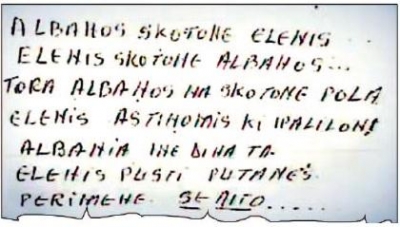 ALBANOS SKOTONE ELENIS ...
ELENIS SKOTONE ALBANOS...
TORA ALBANOS NA SKOTONE POLA
ELENIS ASTINOMIS KI IPALILON!
ALBANIA INE DINA TA-
ELENIS PUSTI PUTANES
PERIMENE. SE AITO......